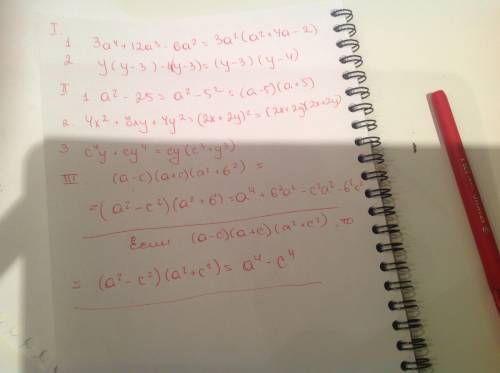 I.
1 3a⁴+12a³-6a²=3a²(a²+4a-2)
2 y(y-3)-4(y-3)=(y-3)(y-4)
II
1 a²-25=a²-5²=(a-5)(a+5)
2. 4x²+8xy+4y²=(2x+2y)²=(2x+2y)(2x+2y)
3 c⁴y+cy⁴=cy(c³+y³)
III (a-c)(a+c)(a²+b²)=
=(a²-c²)(a²+b²)=a⁴+b²a²-c²a²-b²c²
Если (a-c)(a+c)(a²+c²), то
=(a²-c²)(a²+c²)=a⁴-c⁴